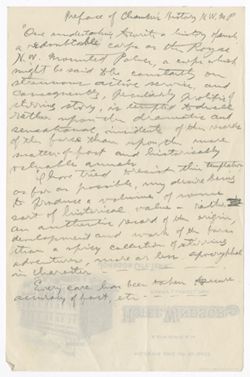 Preface of Chambers History N.W.M.P.
"One undertaking to write a history of such
a redoubtable corps as the Royal
N.W. Mounted Police, a corps which
might be said to be constantly on
strenuous active service, and
consequently, peculiarly prolific of
stirring story, is tempted to dwell
rather upon the dramatic and
sensational incidents of the records
of the force than upon the more
matter of fact and historically
valuable annals.
"I have tried to resist this temptation
as far as possible, my desire being
to produce a volume of some
sort of historical value, rather
an authentic record of the origin,
development and work of the force
than a spicy collection of stirring
adventures, more or less apocryphal
in character
Every care has been taken to secure
accuracy of fact, etc.
HOTEL WINDSOR